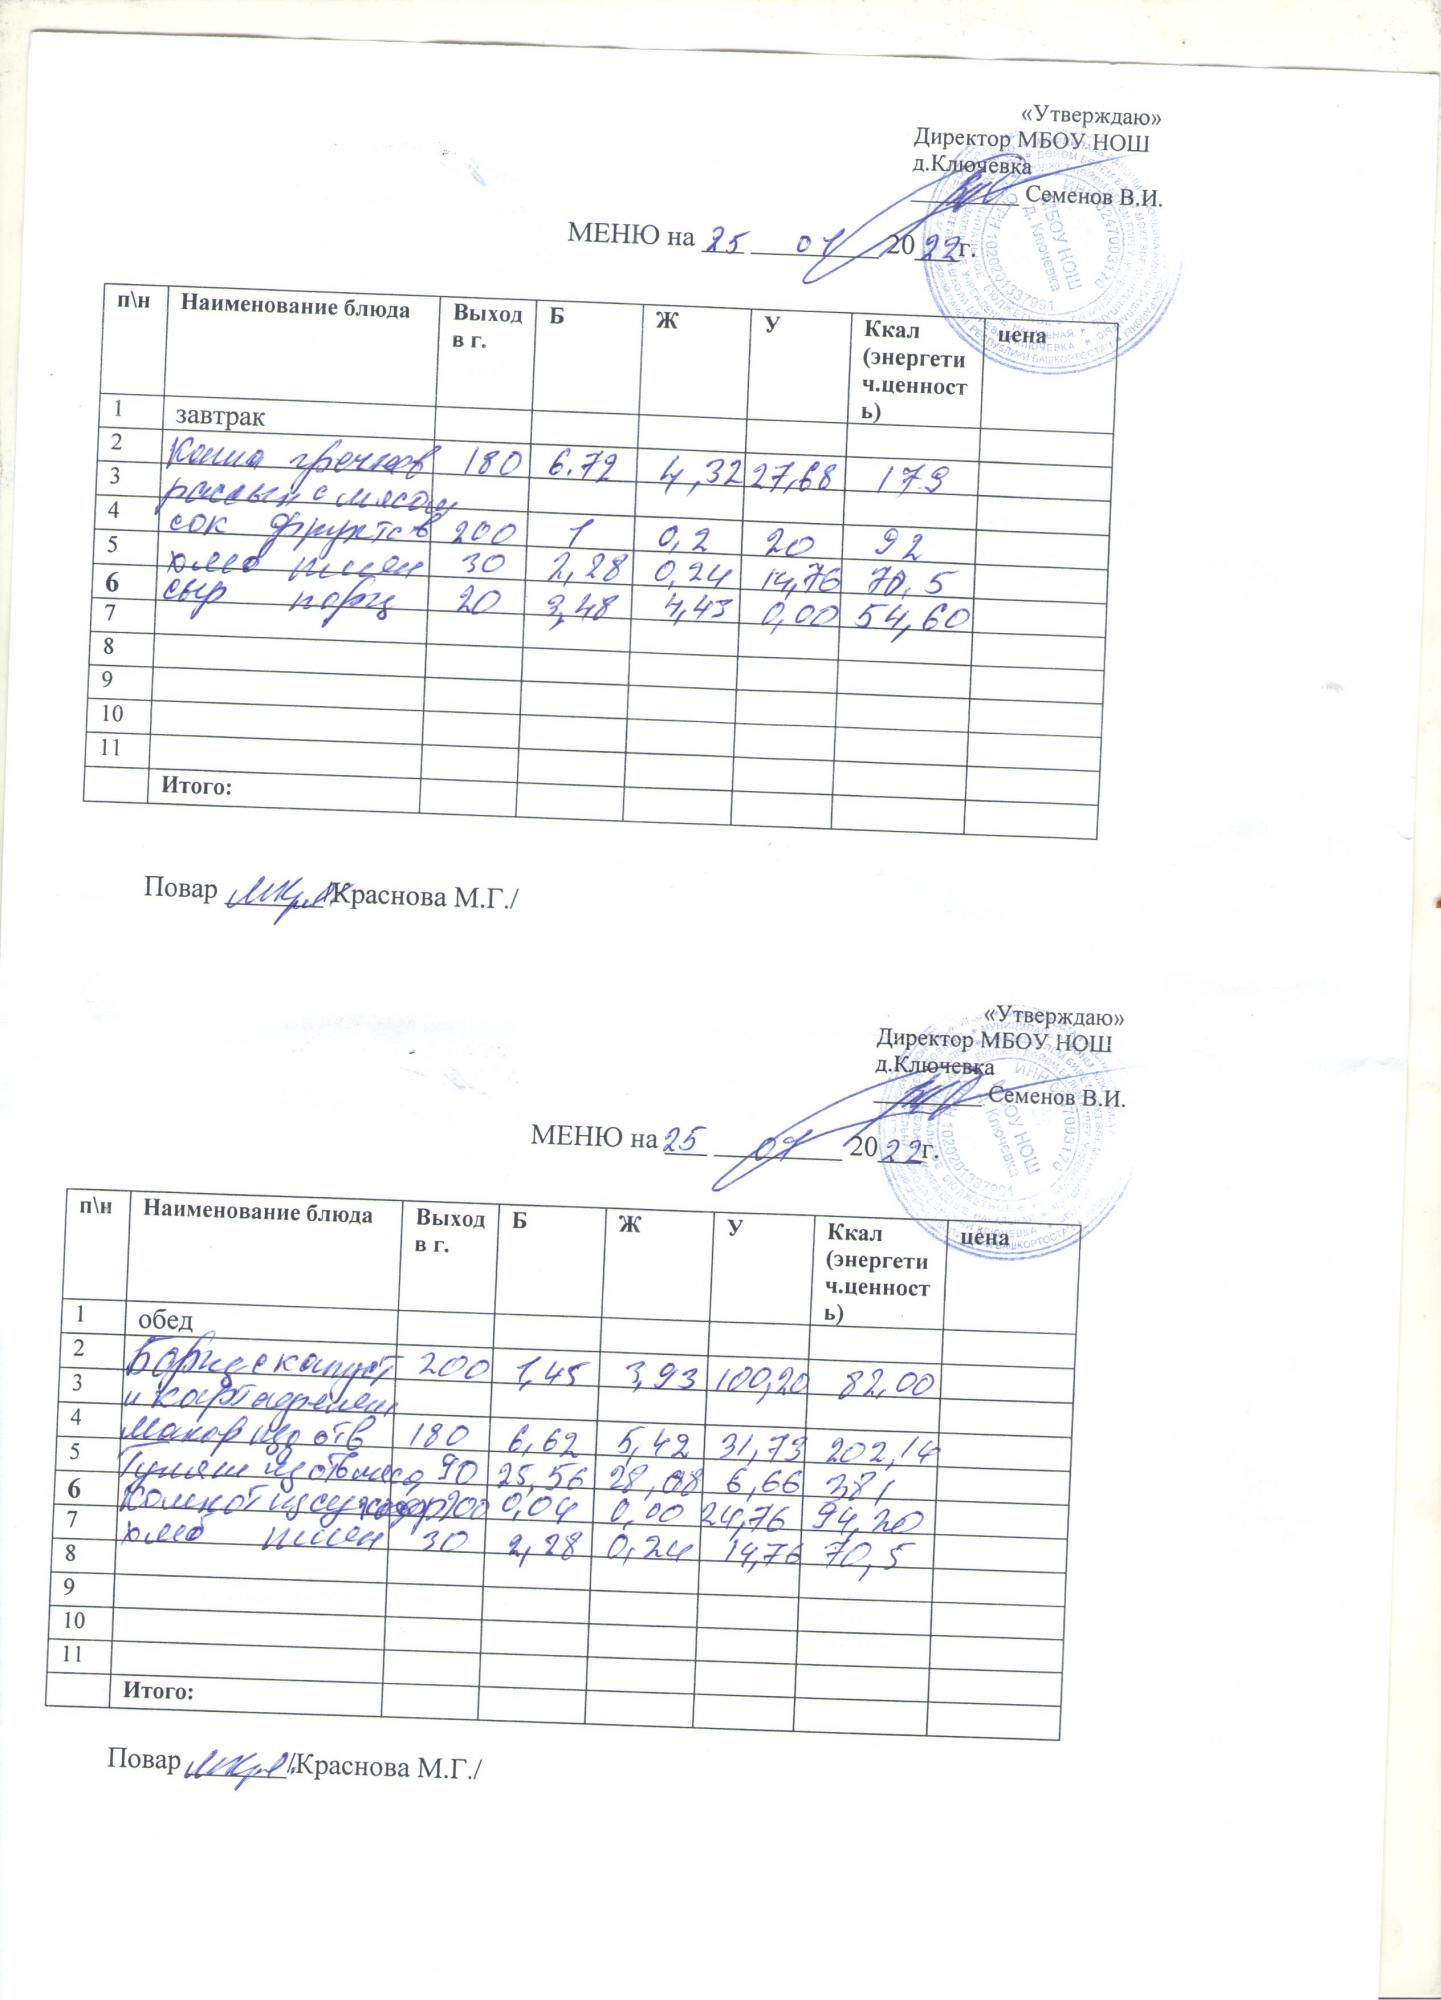 «Утверждаю»
Директор МБОУ НОШ
д.Ключевка
Семенов В.И.
МЕНЮ на 25 01 2022г.
п\н Наименование блюда Выход в г. Б Ж У Ккал (энергетич.ценность) цена
1 завтрак
2 Каша гречнев 180 6.72 4,32 27,68 179
3 рассып с мясом
4 сок фруктов 200 1 0,2 20 92
5 хлеб пшен 30 2,28 0,24 14,76 70,5
6 сыр порц 20 3,48 4,43 0,00 54,60
7
8
9
10
11
Итого:
Повар /Краснова М.Г./
«Утверждаю»
Директор МБОУ НОШ
д.Ключевка
Семенов В.И.
МЕНЮ на 25 01 2022г.
п\н Наименование блюда Выход в г. Б Ж У Ккал (энергетич.ценность) цена
1 обед
2 Борщ с капуст 200 1,45 3,93 100,20 82,00
3 и картофелем
4 Макар изд отв 180 6,62 5,42 31,73 202,14
5 Гуляш из отв мяса 90 25,56 28,08 6,66 381
6 Компот из сухофр 200 0,04 0,00 24,76 94,20
7 хлеб пшен 30 2,28 0,24 14,76 70,5
8
9
10
11
Итого:
Повар /Краснова М.Г./